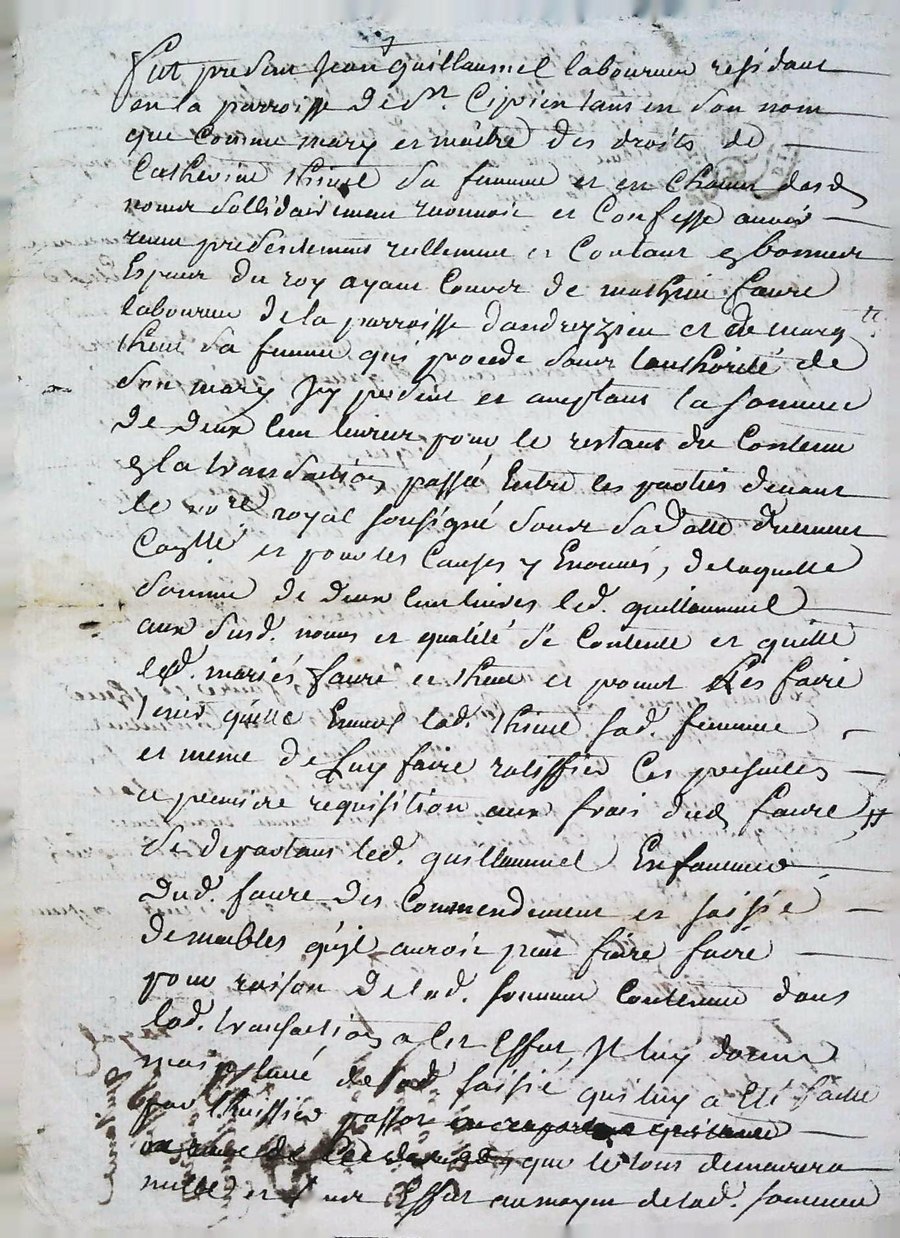 Fut present Jean guillaumel laboureur residant
en la parroisse de St. Ciprien tans en son nom
que comme mary et maître des droits de
Catherine thiuel sa femme et en chacun desd
noms sollidairement reconnoit et Confesse auoir
receu presentement reellement et Contant en bonnes
Especes du roy ayant Cours de mathieu faure
laboureur de la parroisse dandrezieu et de marg tte.
sa femme qui procede sous lauthorité de
son mary Icy present et aceptans la somme
de deux Cent liures pour le restant du Contenu
en la transaction passée Entre les parties deuant
le nore royal soussigné sous sa datte duement
Collé et pour les Causes y Enoncés, de laquelle
somme de deux Cent liures led. guillaumel
aux susd. noms et qualité se Contente et quitte
lesd. mariés faure et et promet les faire
tenir quitte Enuers lad. thiuel sad. femme
et meme de luy faire ratiffier Ces presentes
a premiere requisition aux frais dud faure
se departans led. guillaumel En faueur
dud. faure des Commendement et saisie
de meubles qu'il auroit peu faire faire
pour raison de lad. somme Contenue dans
lad. transaction a Cet Effet Il luy donne
main leuée de lad saisie qui luy a Eté faitte
par lhuissier passot
que le tout demeurera
nulle et sans Effet au moyen de lad. somme